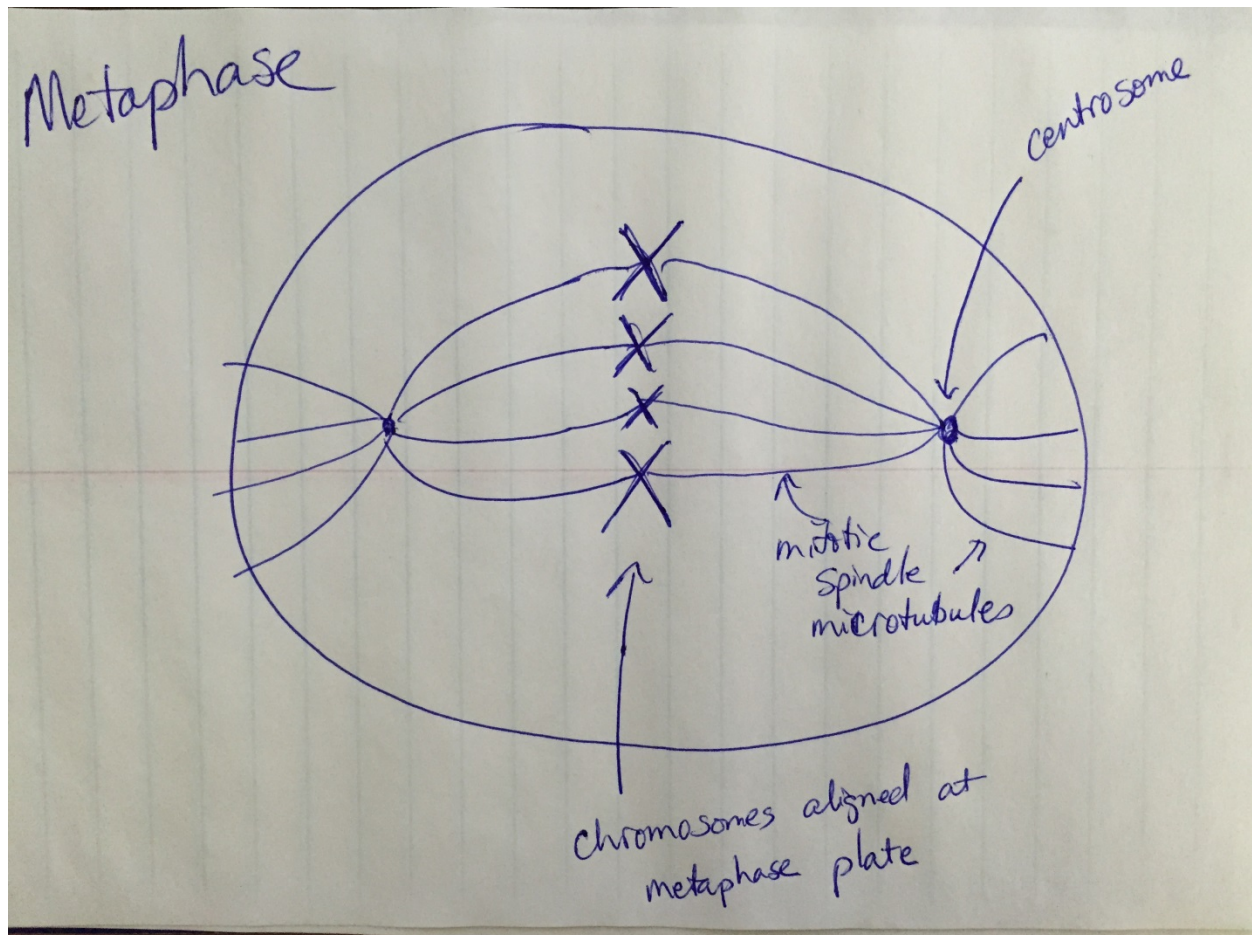 Metaphase
centrosome
mitotic
spindle
microtubules
chromosomes aligned at
metaphase plate